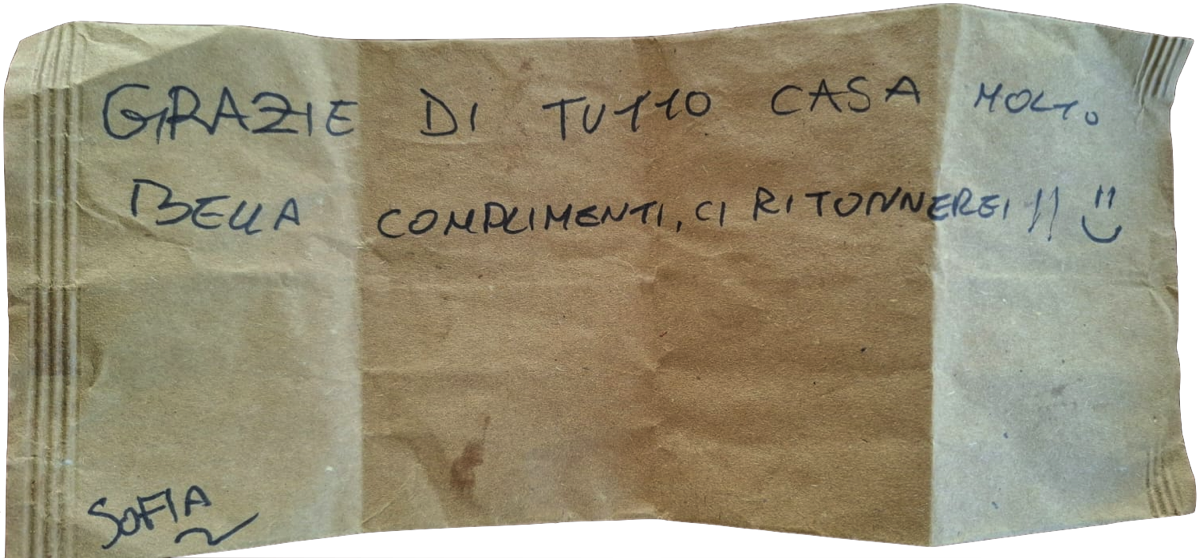 GRAZIE DI TUTTO CASA MOLTO
BELLA COMPLIMENTI, CI RITORNEREI !! :)
SOFIA